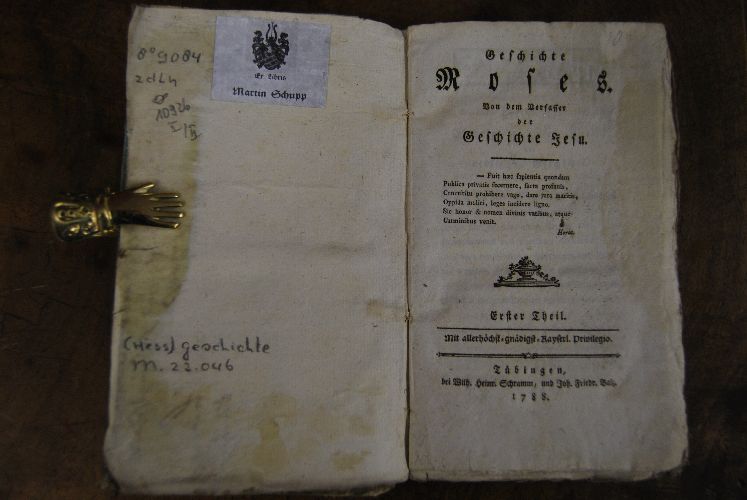 8° 9084
2dLn
1092b
I/II
Ex Libris
Martin Schupp
(Hess) geschichte
M. 22.046
Geſchichte
Moſes.
Von dem Verfaſſer
der
Geſchichte Jeſu.
— Fuit hæc ſapientia quondam
Publica privatis ſecernere, ſacra profanis,
Concubitu prohibere vago, dare jura maritis,
Oppida moliri, leges incidere ligno.
Sic honor & nomen divinis vatibus, atque
Carminibus venit.
Horat.
Erſter Theil.
Mit allerhöchſt-gnädigſt-Kayſerl. Privilegio.
Tübingen,
bei Wilh. Heinr. Schramm, und Joh. Friedr. Balz.
1788.